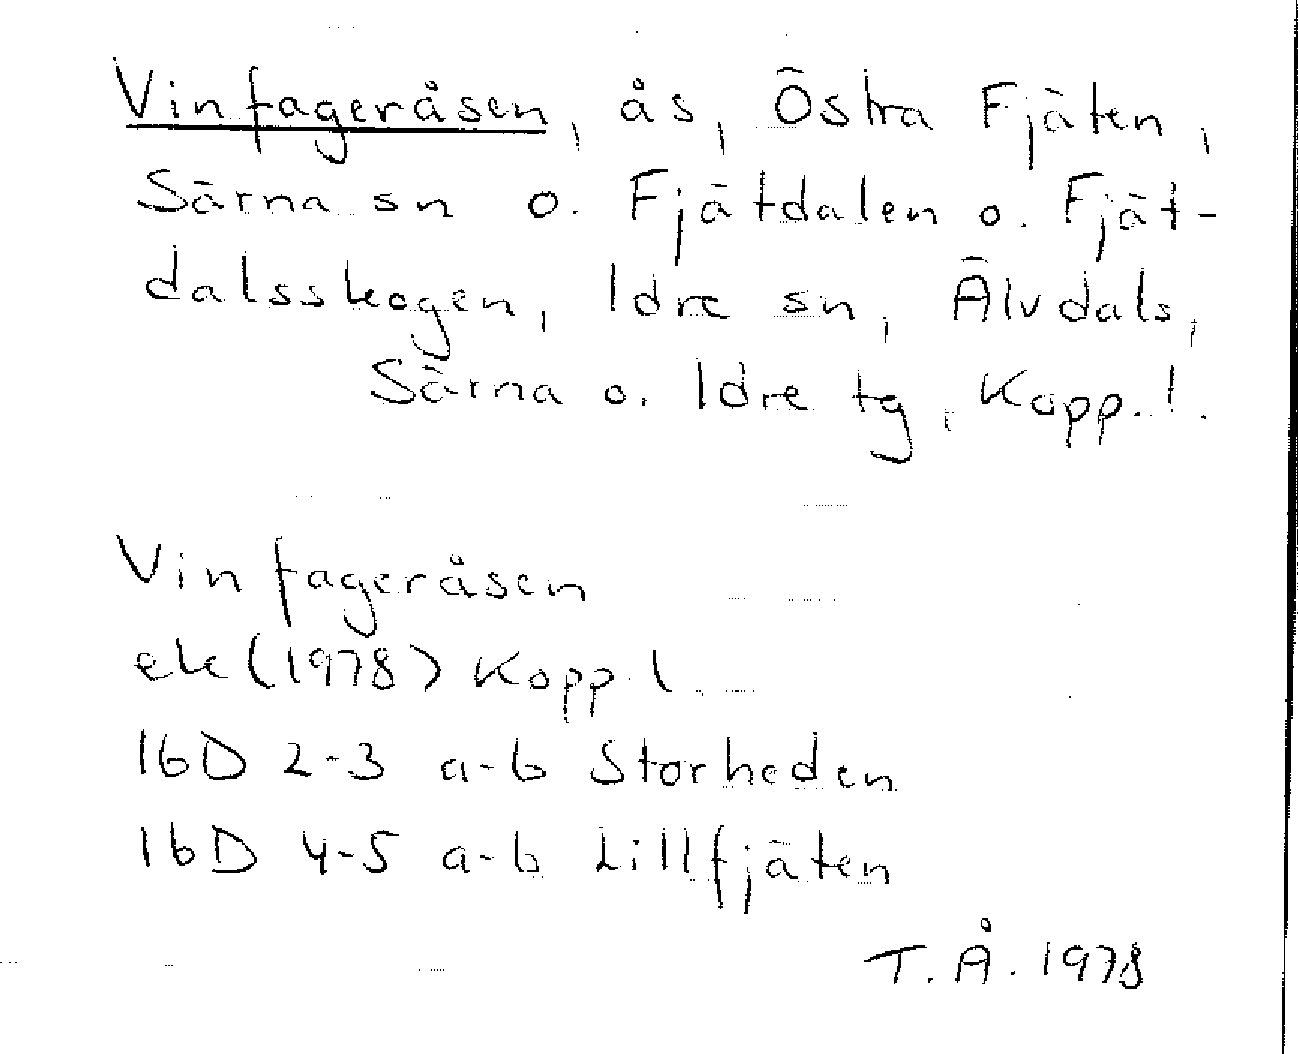 Vinfageråsen, ås, Östra Fjäten,
Särna sn o. Fjätdalen o. Fjät-
dalsskogen, Idre sn, Älvdals,
Särna o. Idre tg, Kopp.l.
Vinfageråsen
ek (1978) Kopp.l.
16D 2-3 a-b Storheden
16D 4-5 a-b Lillfjäten
T.Å. 1978